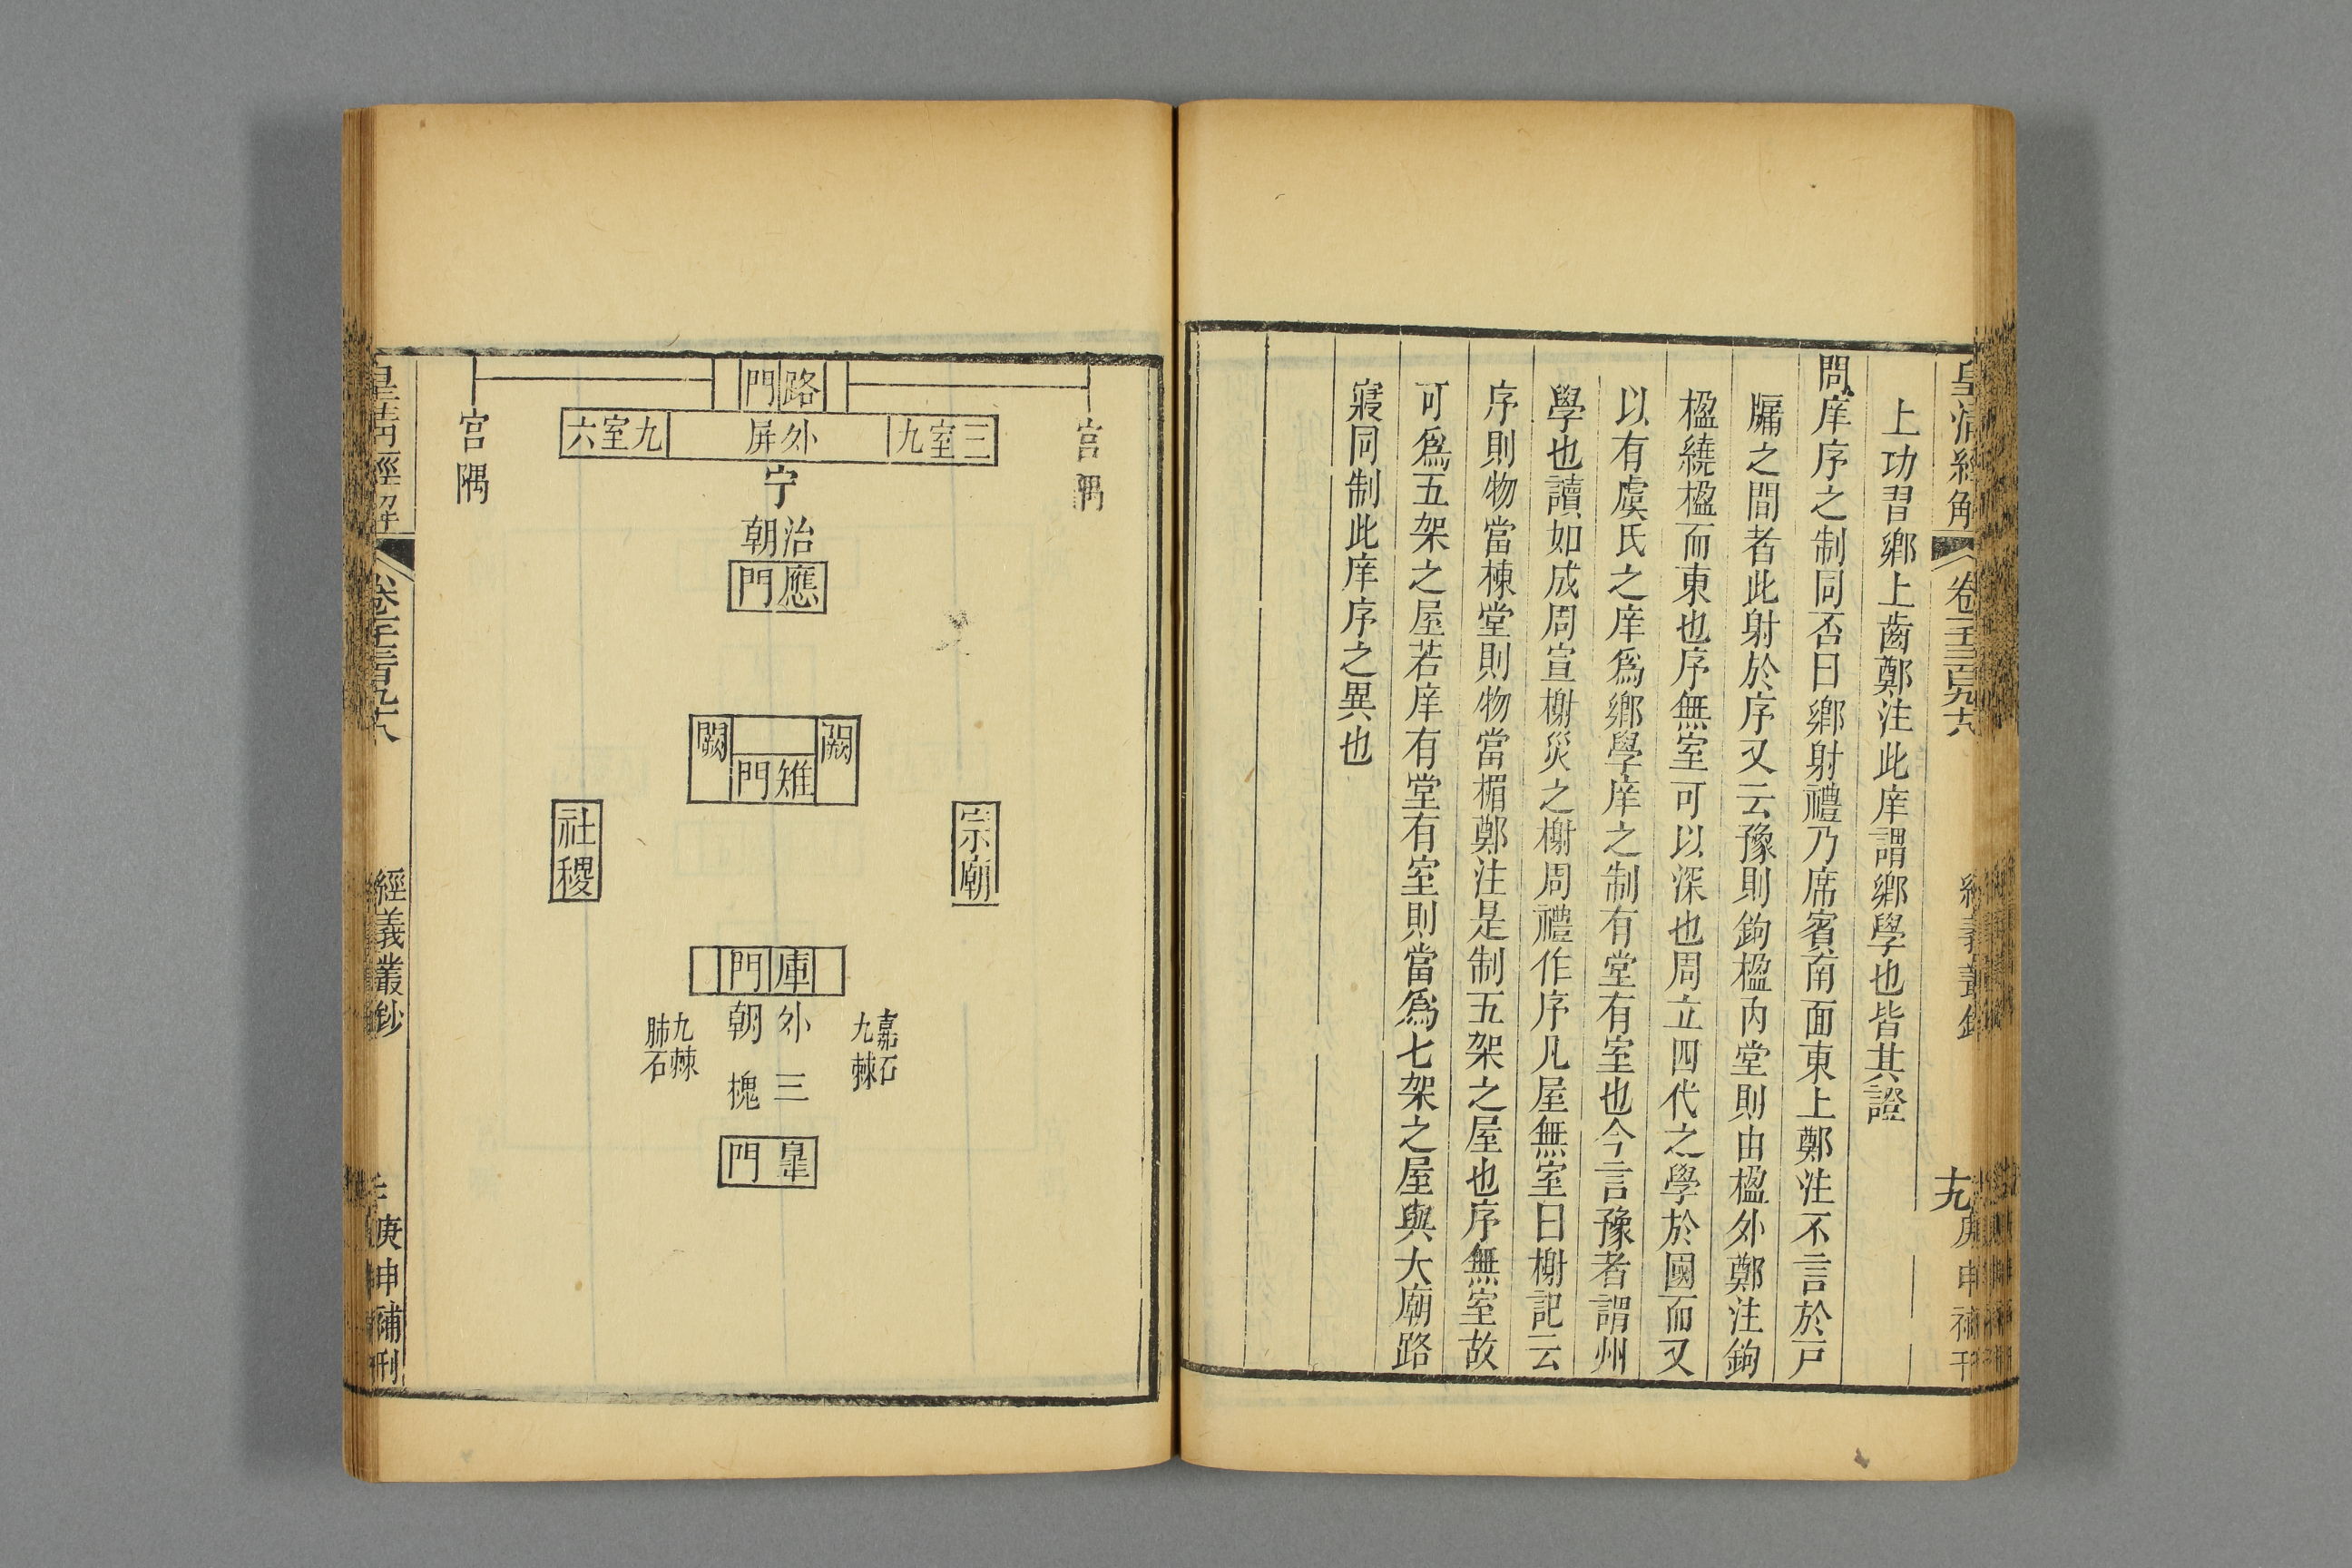 皇清經解
卷一千三百九十八
經義叢鈔
十九
庚申補刊
上功習鄉上齒鄭注此庠謂鄉學也皆其證
問庠序之制同否曰鄉射禮乃席賓南面東上鄭注不言於戸
牖之間者此射於序又云豫則鉤楹內堂則由楹外鄭注鉤
楹繞楹而東也序無室可以深也周立四代之學於國而又
以有虞氏之庠爲鄉學庠之制有堂有室也今言豫者謂州
學也讀如成周宣榭災之榭周禮作序凡屋無室曰榭記云
序則物當棟堂則物當楣鄭注是制五架之屋也序無室故
可爲五架之屋若庠有堂有室則當爲七架之屋與大廟路
寢同制此庠序之異也
路門
宮隅
宮隅
三室九
外屏
九室六
宁
治朝
應門
闕
雉門
闕
宗廟
社稷
庫門
外朝
嘉石
九棘
九棘
肺石
三槐
皐門
皇清經解
卷一千三百九十八
經義叢鈔
庚申補刊